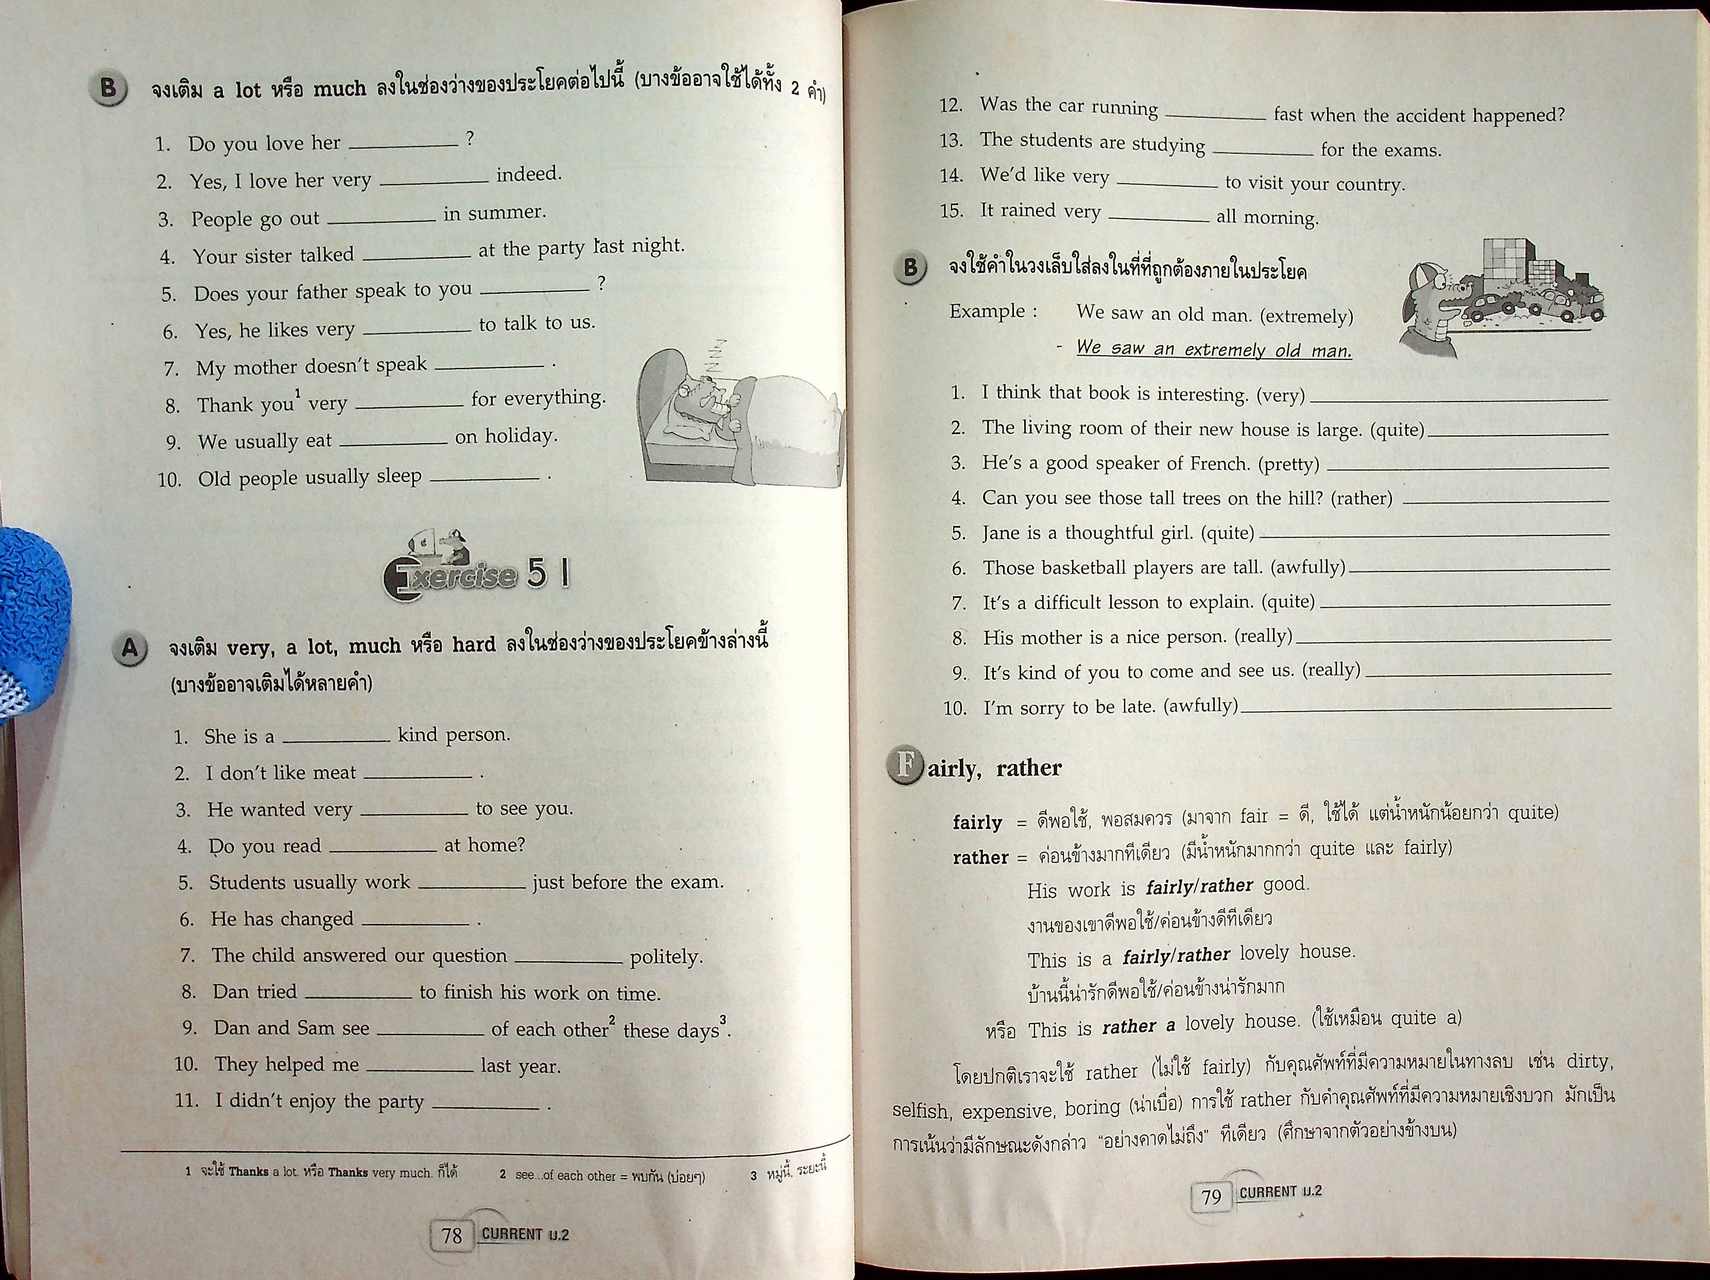 B จงเติม a lot หรือ much ลงในช่องว่างของประโยคต่อไปนี้ (บางข้ออาจใช้ได้ทั้ง 2 คำ)
1. Do you love her __________ ?
2. Yes, I love her very __________ indeed.
3. People go out __________ in summer.
4. Your sister talked __________ at the party last night.
5. Does your father speak to you __________ ?
6. Yes, he likes very __________ to talk to us.
7. My mother doesn't speak __________ .
8. Thank you¹ very __________ for everything.
9. We usually eat __________ on holiday.
10. Old people usually sleep __________ .
Exercise 51
A จงเติม very, a lot, much หรือ hard ลงในช่องว่างของประโยคข้างล่างนี้
(บางข้ออาจเติมได้หลายคำ)
1. She is a __________ kind person.
2. I don't like meat __________ .
3. He wanted very __________ to see you.
4. Do you read __________ at home?
5. Students usually work __________ just before the exam.
6. He has changed __________ .
7. The child answered our question __________ politely.
8. Dan tried __________ to finish his work on time.
9. Dan and Sam see __________ of each other² these days³.
10. They helped me __________ last year.
11. I didn't enjoy the party __________ .
1 จะใช้ Thanks a lot. หรือ Thanks very much. ก็ได้ 2 see...of each other = พบกัน (บ่อยๆ) 3 หมู่นี้, ระยะนี้
78 CURRENT ม.2
12. Was the car running __________ fast when the accident happened?
13. The students are studying __________ for the exams.
14. We'd like very __________ to visit your country.
15. It rained very __________ all morning.
B จงใช้คำในวงเล็บใส่ลงในที่ที่ถูกต้องภายในประโยค
Example : We saw an old man. (extremely)
- We saw an extremely old man.
1. I think that book is interesting. (very) __________
2. The living room of their new house is large. (quite) __________
3. He's a good speaker of French. (pretty) __________
4. Can you see those tall trees on the hill? (rather) __________
5. Jane is a thoughtful girl. (quite) __________
6. Those basketball players are tall. (awfully) __________
7. It's a difficult lesson to explain. (quite) __________
8. His mother is a nice person. (really) __________
9. It's kind of you to come and see us. (really) __________
10. I'm sorry to be late. (awfully) __________
Fairly, rather
fairly = ดีพอใช้, พอสมควร (มาจาก fair = ดี, ใช้ได้ แต่น้ำหนักน้อยกว่า quite)
rather = ค่อนข้างมากทีเดียว (มีน้ำหนักมากกว่า quite และ fairly)
His work is fairly/rather good.
งานของเขาดีพอใช้/ค่อนข้างดีทีเดียว
This is a fairly/rather lovely house.
บ้านนี้น่ารักดีพอใช้/ค่อนข้างน่ารักมาก
หรือ This is rather a lovely house. (ใช้เหมือน quite a)
โดยปกติเราจะใช้ rather (ไม่ใช้ fairly) กับคุณศัพท์ที่มีความหมายในทางลบ เช่น dirty,
selfish, expensive, boring (น่าเบื่อ) การใช้ rather กับคำคุณศัพท์ที่มีความหมายเชิงบวก มักเป็น
การเน้นว่ามีลักษณะดังกล่าว "อย่างคาดไม่ถึง" ทีเดียว (ศึกษาจากตัวอย่างข้างบน)
79 CURRENT ม.2